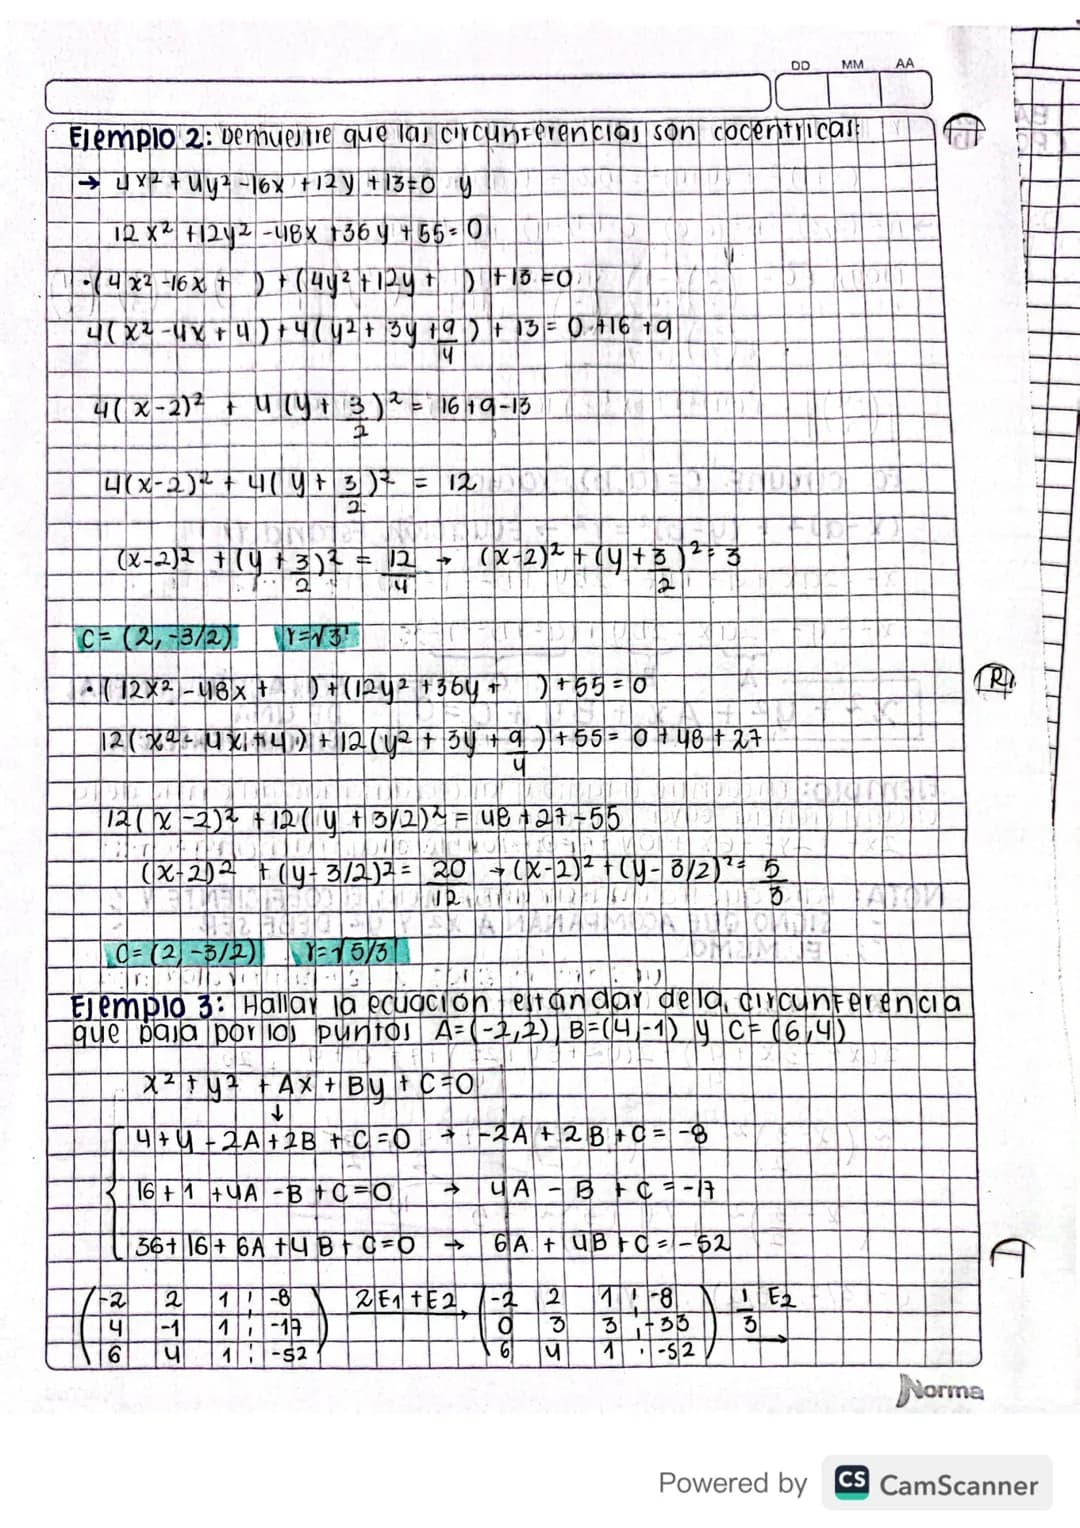 DD MM AA
Ejemplo 2: Demuestre que las circunferencias son cocentricas:
→ 4x² + 4y² -16x +12y +13=0 y
12x² +12y² -48x +36y +55=0
•(4x² -16x + ) + (4y² +12y + ) +13 =0
4(x² -4x +4) +4(y² + 3y + 9/4) + 13 = 0 +16 +9
4(x-2)² + 4(y + 3/2)² = 16+9-13
4(x-2)² + 4(y + 3/2)² = 12
(x-2)² + (y + 3/2)² = 12/4 → (x-2)² + (y + 3/2)² = 3
C= (2, -3/2) r=√3
•(12x² -48x + ) + (12y² +36y + ) +55 = 0
12(x² -4x +4) + 12(y² + 3y + 9/4) +55 = 0 +48 +27
12(x-2)² +12(y + 3/2)² = 48 +27-55
(x-2)² + (y- 3/2)² = 20/12 → (x-2)² + (y- 3/2)² = 5/3
C= (2, -3/2) r=√5/3
Ejemplo 3: Hallar la ecuación estándar de la circunferencia
que pasa por los puntos A=(-2,2), B=(4,-1) y C= (6,4)
x² + y² + Ax + By + C=0
↓
4+4 -2A +2B + C =0 → -2A + 2B + C = -8
16 + 1 +4A -B + C=0 → 4A - B + C = -17
36+ 16+ 6A +4B + C=0 → 6A + 4B + C = -52
-2 2 1 -8 2E1 + E2 -2 2 1 -8 1/3 E2
4 -1 1 -17 0 3 3 -33
6 4 1 -52 6 4 1 -52
Norma
Powered by CS CamScanner